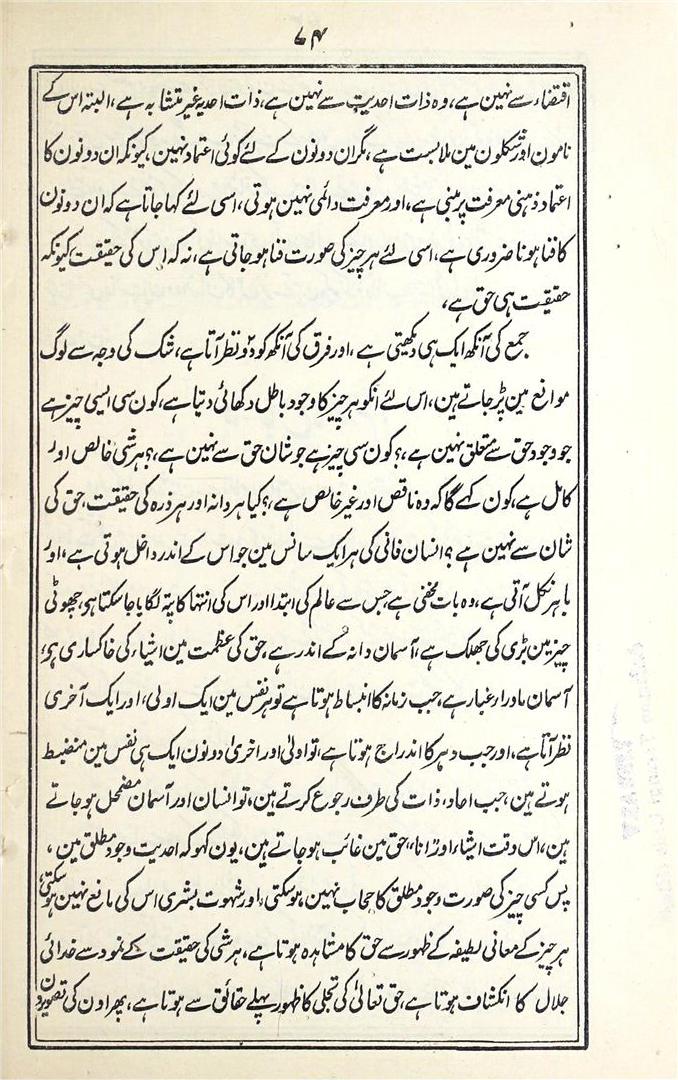 ۷۴
اقتضاء سے نہین ہے، وہ ذات احدیت سے نہین ہے، ذات احدیہ غیر متشابہ ہے، البتہ اس کے
نامون اور شکلون مین ملابست ہے، مگر ان دونون کے لئے کوئی اعتماد نہین، کیونکہ ان دونون کا
اعتماد ذہنی معرفت پر مبنی ہے، اور معرفت دائمی نہین ہوتی، اسی لئے کہا جاتا ہے کہ ان دونون
کا فنا ہونا ضروری ہے، اسی لئے ہر چیز کی صورت فنا ہو جاتی ہے، نہ کہ اس کی حقیقت کیونکہ
حقیقت ہی حق ہے،
جمع کی آنکھ ایک ہی دیکھتی ہے، اور فرق کی آنکھ کو دو نظر آتا ہے، شک کی وجہ سے لوگ
موانع مین پڑ جاتے ہین، اس لئے انکو ہر چیز کا وجود باطل دکھائی دیتا ہے، کون سی ایسی چیز ہے
جو وجود حق سے متعلق نہین ہے،؟ کون سی چیز ہے جو شان حق سے نہین ہے،؟ ہر شی خالص اور
کامل ہے، کون کہے گا کہ وہ ناقص اور غیر خالص ہے،؟ کیا ہر دانہ اور ہر ذرہ کی حقیقت، حق کی
شان سے نہین ہے؟ انسان فانی کی ہر ایک سانس مین جو اس کے اندر داخل ہوتی ہے، اور
باہر نکل آتی ہے، وہ بات مخفی ہے جس سے عالم کی ابتدا اور اس کی انتہا کا پتہ لگایا جا سکتا ہی، چھوٹی
چیز مین بڑی کی جھلک ہے، آسمان دانہ کے اندر ہے، حق کی عظمت مین اشیاء کی خاکساری ہی،
آسمان ماوراء غبار ہے، جب زمانہ کا انبساط ہوتا ہے تو ہر نفس مین ایک اولی، اور ایک آخری
نظر آتا ہے، اور جب دہر کا اندراج ہوتا ہے، تو اولیٰ اور اخریٰ دونون ایک ہی نفس مین منضبط
ہوتے ہین، جب احاد، ذات کی طرف رجوع کرتے ہین، تو انسان اور آسمان مضمحل ہو جاتے
ہین، اس وقت اشیاء اور "انا"، حق مین غائب ہو جاتے ہین، یون کہو کہ احدیت وجود مطلق مین،
پس کسی چیز کی صورت وجود مطلق کا حجاب نہین، ہو سکتی، اور شہوت بشری اس کی مانع نہین ہو سکتی،
ہر چیز کے معانی لطیفہ کے ظہور سے حق کا مشاہدہ ہوتا ہے، ہر شی کی حقیقت کے نمود سے خدائی
جلال کا انکشاف ہوتا ہے، حق تعالیٰ کی تجلی کا ظہور پہلے حقائق سے ہوتا ہے، پھر اون کی تصویرون